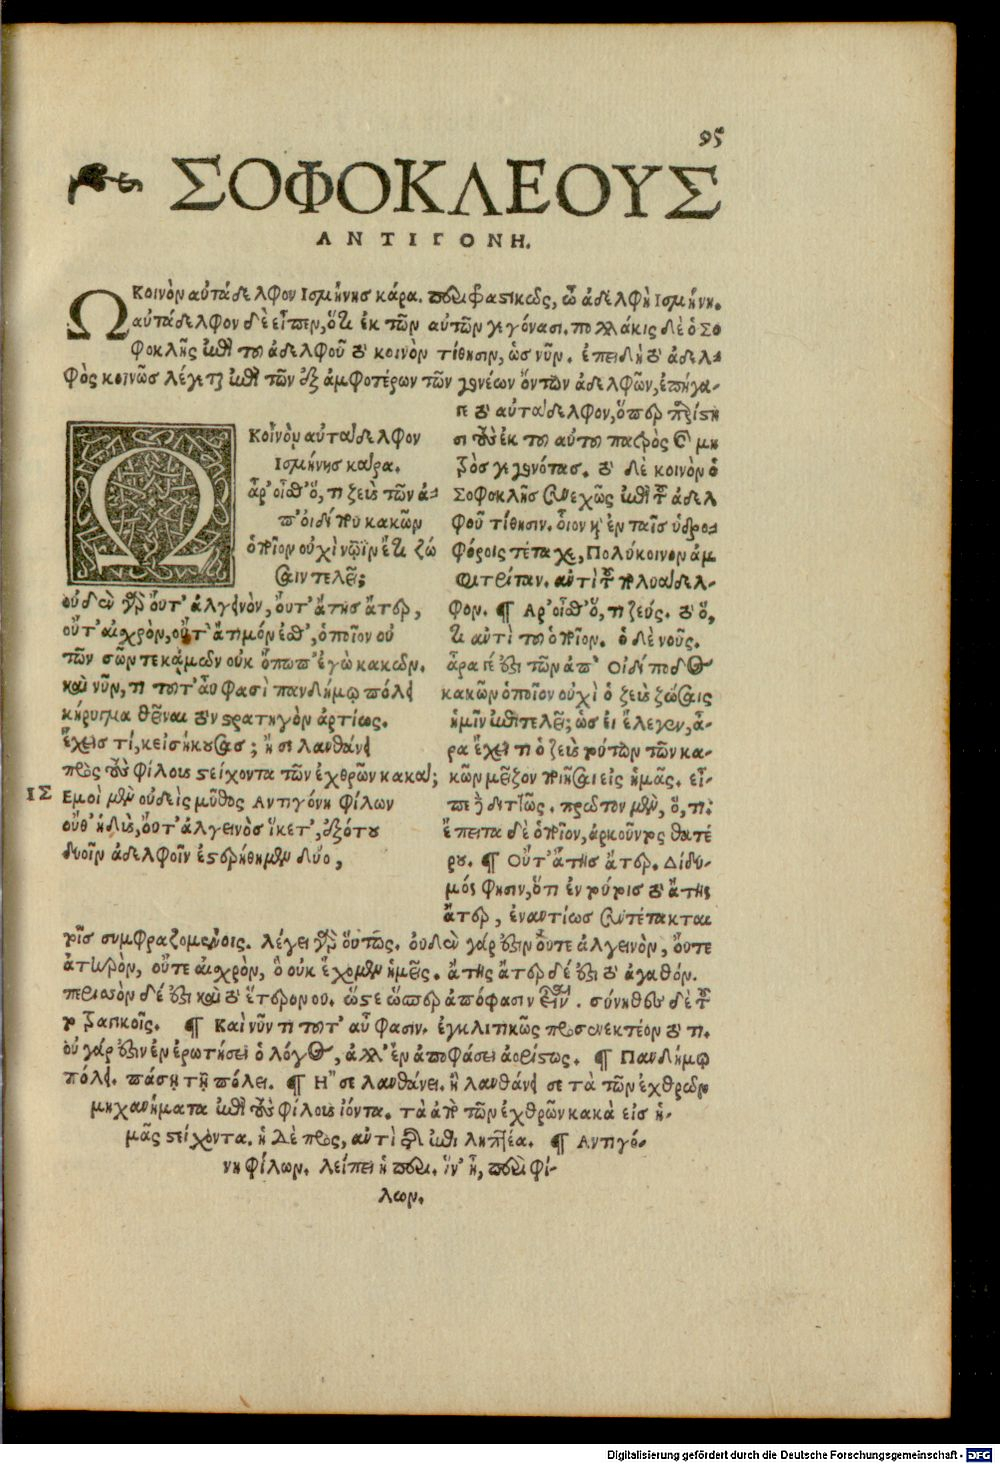 95
ΣΟΦΟΚΛΕΟΥΣ
ΑΝΤΙΓΟΝΗ.
Ω Κοινὸν αὐτάδελφον Ισμήνης κάρα. περιφραστικῶς, ὦ ἀδελφὴ Ισμήνη.
αὐτάδελφον δὲ εἶπεν, ὅτι ἐκ τῶν αὐτῶν γεγόνασι. πολλάκις δὲ ὁ Σο
φοκλῆς ἐπὶ τοῦ ἀδελφοῦ τὸ κοινὸν τίθησιν, ὡς νῦν. ἐπειδὴ τὸ ἀδελ-
φὸς κοινῶς λέγεται ἐπὶ τῶν ἐξ ἀμφοτέρων τῶν γονέων ὄντων ἀδελφῶν, ἐπήγα-
γε τὸ αὐτάδελφον, ὅπερ παρίστη
σι τοὺς ἐκ τοῦ αὐτοῦ πατρὸς καὶ μη
τρὸς γεγονότας. τὸ δὲ κοινὸν ὁ
Σοφοκλῆς συνεχῶς ἐπὶ τοῦ ἀδελ
φοῦ τίθησιν. οἷον κἀν ταῖς ὑδρο-
φόροις τέτακται, Πολύκοινον ἀμ
φιτρίταν. ἀντὶ τοῦ πολυάδελ-
φον. ¶ Αρ' οἶσθ' ὅ, τι ζεύς. τὸ ὅ,
τι ἀντὶ τοῦ ὁποῖον. ὁ δὲ νοῦς.
ἆρά γέ ἐστι τῶν ἀπ' Οἰδίποδος
κακῶν ὁποῖον οὐχὶ ὁ ζεὺς ζώσαις
ἡμῖν ἐπιτελεῖ; ὡς εἰ ἔλεγεν, ἆ-
ρα ἔχει τι ὁ ζεὺς τούτων τῶν κα-
κῶν μεῖζον ποιῆσαι εἰς ἡμᾶς. εἶ-
πε δὲ διττῶς. πρῶτον μὲν, ὅ, τι.
ἔπειτα δὲ ὁποῖον, ἀρκοῦντος θατέ
ρου. ¶ Οὔτ' ἄτης ἄτερ. Δίδυ-
μός φησιν, ὅτι ἐν τούτοις τὸ ἄτης
ἄτερ, ἐναντίως συντέτακται
Κοινὸν αὐτάδελφον
Ισμήνης κάρα.
ἆρ' οἶσθ' ὅ, τι ζεὺς τῶν ἀ-
π' οἰδίπου κακῶν
ὁποῖον οὐχὶ νῷϊν ἔτι ζώ
σαιν τελεῖ;
οὐδὲν γὰρ οὔτ' ἀλγεινὸν, οὔτ' ἄτης ἄτερ,
οὔτ' αἰσχρὸν, οὔτ' ἄτιμόν ἐσθ', ὁποῖον οὐ
τῶν σῶν τε κἀμῶν οὐκ ὄπωπ' ἐγὼ κακῶν.
καὶ νῦν, τί τοῦτ' αὖ φασὶ πανδήμῳ πόλει
κήρυγμα θεῖναι τὸν στρατηγὸν ἀρτίως.
ἔχεις τί, κεἰσήκουσας; ἤ σε λανθάνει
πρὸς τοὺς φίλους στείχοντα τῶν ἐχθρῶν κακά;
ΙΣ Εμοὶ μὲν οὐδεὶς μῦθος Αντιγόνη φίλων
οὔθ' ἡδὺς, οὔτ' ἀλγεινὸς ἵκετ', ἐξότου
δυοῖν ἀδελφοῖν ἐστερήθημεν δύο,
τοῖς συμφραζομένοις. λέγει γὰρ οὕτως. οὐδὲν γάρ ἐστιν οὔτε ἀλγεινὸν, οὔτε
ἀτηρὸν, οὔτε αἰσχρὸν, ὃ οὐκ ἔχομεν ἡμεῖς. ἄτης ἄτερ δέ ἐστι τὸ ἀγαθόν.
περισσὸν δέ ἐστι καὶ τὸ ἕτερον ου. ὥστε ὥσπερ ἀπόφασιν εἶναι. σύνηθες δὲ τοῦ
το ἀττικοῖς. ¶ Καὶ νῦν τί τοῦτ' αὖ φασιν. ἐγκλιτικῶς προσενεκτέον τὸ τι.
οὐ γάρ ἐστιν ἐν ἐρωτήσει ὁ λόγος, ἀλλ' ἐν ἀποφάσει ἀορίστως. ¶ Πανδήμῳ
πόλει. πάσῃ τῇ πόλει. ¶ Η" σε λανθάνει. ἢ λανθάνει σε τὰ τῶν ἐχθρῶν
μηχανήματα ἐπὶ τοὺς φίλους ἰόντα. τὰ ἀπὸ τῶν ἐχθρῶν κακὰ εἰς ἡ-
μᾶς στείχοντα. ἡ δὲ πρὸς, ἀντὶ τῆς ἐπὶ ληπτέα. ¶ Αντιγό-
νη φίλων. λείπει ἡ περι. ἵν' ᾖ, περὶ φί-
λων.
Digitalisierung gefördert durch die Deutsche Forschungsgemeinschaft - DFG